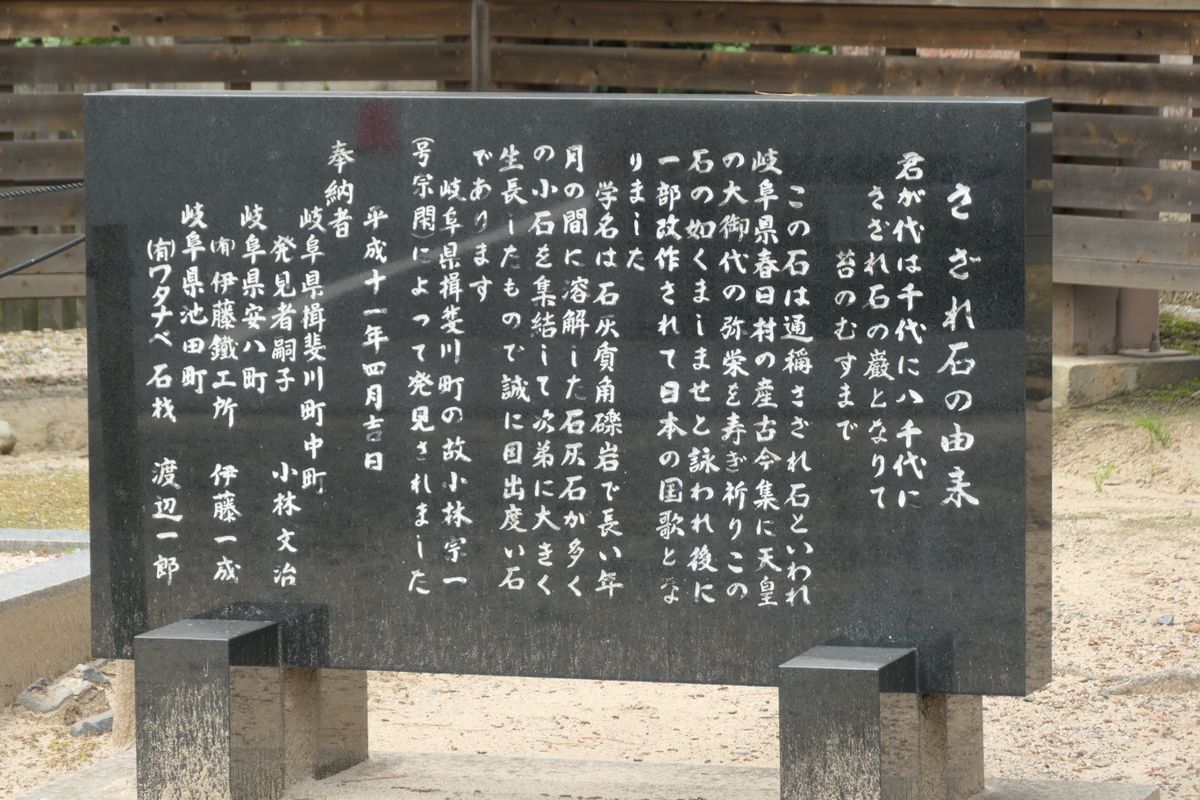 さざれ石の由来
君が代は千代に八千代に
さざれ石の巌となりて
苔のむすまで
この石は通稱さざれ石といわれ
岐阜県春日村の産古今集に天皇
の大御代の弥栄を寿ぎ祈りこの
石の如くましませと詠われ後に
一部改作されて日本の国歌とな
りました
学名は石灰質角礫岩で長い年
月の間に溶解した石灰石が多く
の小石を集結して次第に大きく
生長したもので誠に国出度い石
であります
岐阜県揖斐川町の故小林宗一
(号宗閑)によって発見されました
平成十一年四月吉日
奉納者
岐阜県揖斐川町中町
発見者嗣子 小林文治
岐阜県安八町
㈲伊藤鐵工所 伊藤一成
岐阜県池田町
㈲ワタナベ石材 渡辺一郎